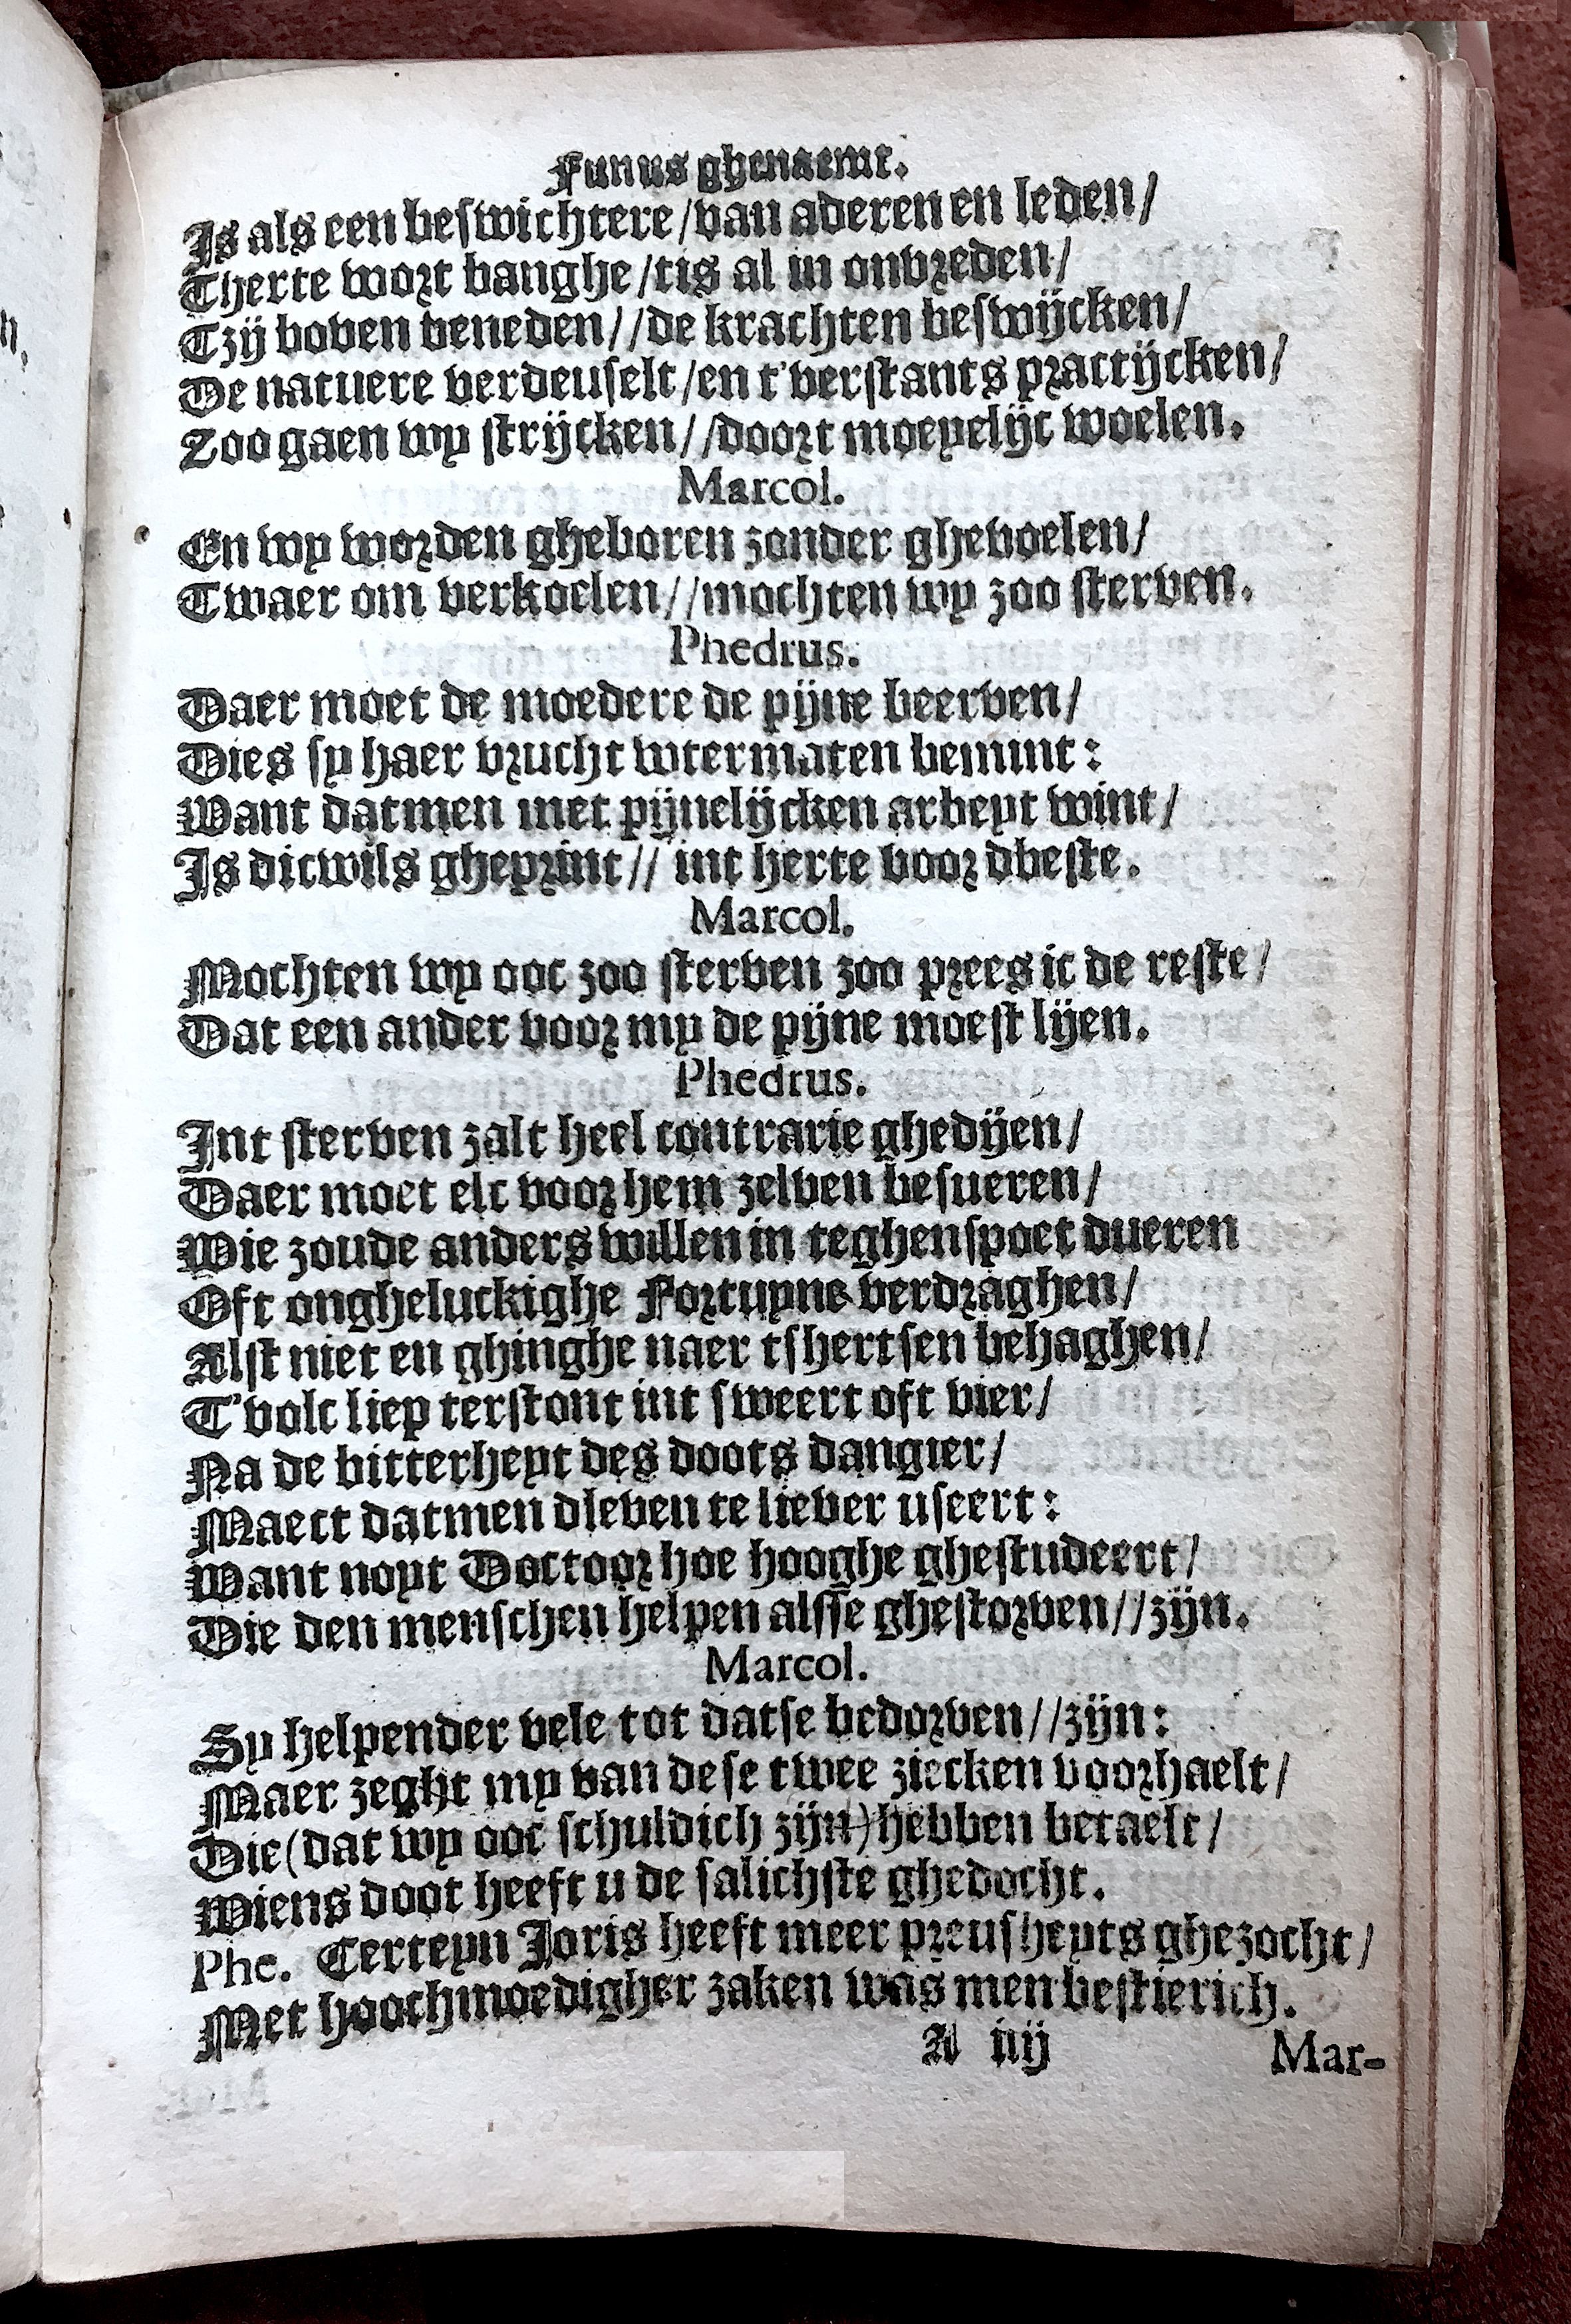 Funus ghenaemt.
Is als een beswichtere/van aderen en leden/
Therte wort banghe/tis al in onvreden/
Tzij boven beneden//de krachten beswijcken/
De natuere verdeuselt/en t'verstants practijcken/
Zoo gaen wy strijcken//doort moeyelijc woelen.
Marcol.
En wy worden gheboren zonder ghevoelen/
Twaer om verkoelen//mochten wy zoo sterven.
Phedrus.
Daer moet de moedere de pijne beerven/
Dies sy haer vrucht wtermaten bemint:
Want datmen met pijnelijcken arbeyt wint/
Is dicwils gheprint// int herte voor dbeste.
Marcol.
Mochten wy ooc zoo sterven zoo prees ic de reste/
Dat een ander voor my de pijne moest lijen.
Phedrus.
Int sterven zalt heel contrarie ghedijen/
Daer moet elc voor hem zelven besueren/
Wie zoude anders willen in teghenspoet dueren
Oft ongheluckighe Fortuyne verdraghen/
Alst niet en ghinghe naer tshertsen behaghen/
T'volc liep terstont int sweert oft vier/
Na de bitterheyt des doots dangier/
Maect datmen dleven te liever useert:
Want noyt Doctoor hoe hooghe ghestudeert/
Die den menschen helpen alsse ghestorven//zijn.
Marcol.
Sy helpender vele tot datse bedorven//zijn:
Maer zeght my van dese twee ziecken voorhaelt/
Die (dat wy ooc schuldich zijn) hebben betaelt/
Wiens doot heeft u de salichste ghedocht.
Phe. Certeyn Joris heeft meer preusheyts ghezocht/
Met hoochmoedigher zaken was men bestierich.
A iiij Mar-